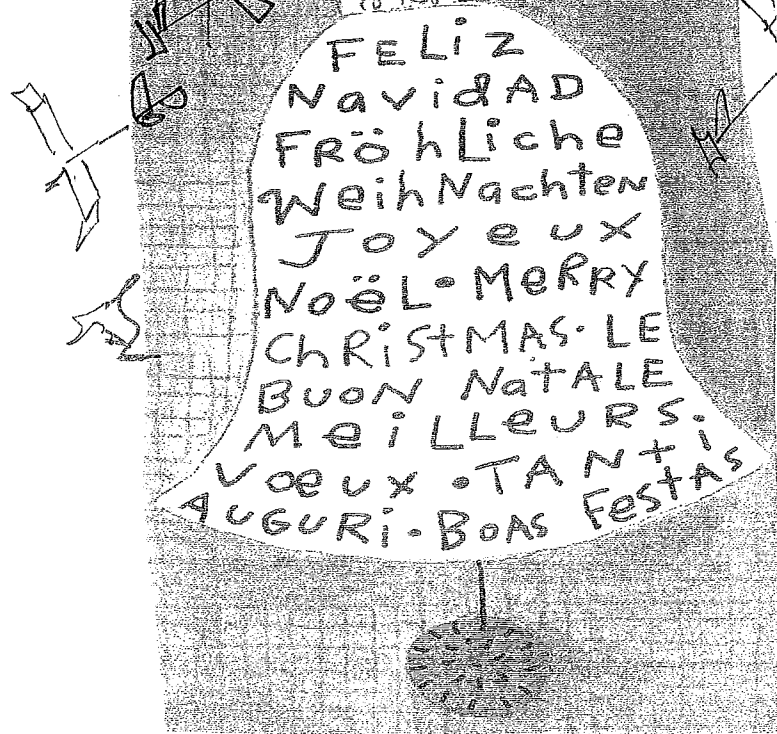 FELiZ
NavidAD
FRöhLiche
WeihNachteN
Joyeux
NoëL•MeRRY
ChRiStMAS•LE
BuoN NatALE
MeiLLeuRS.
Vœux •TANti
AuGuRi•BoAS FestAs